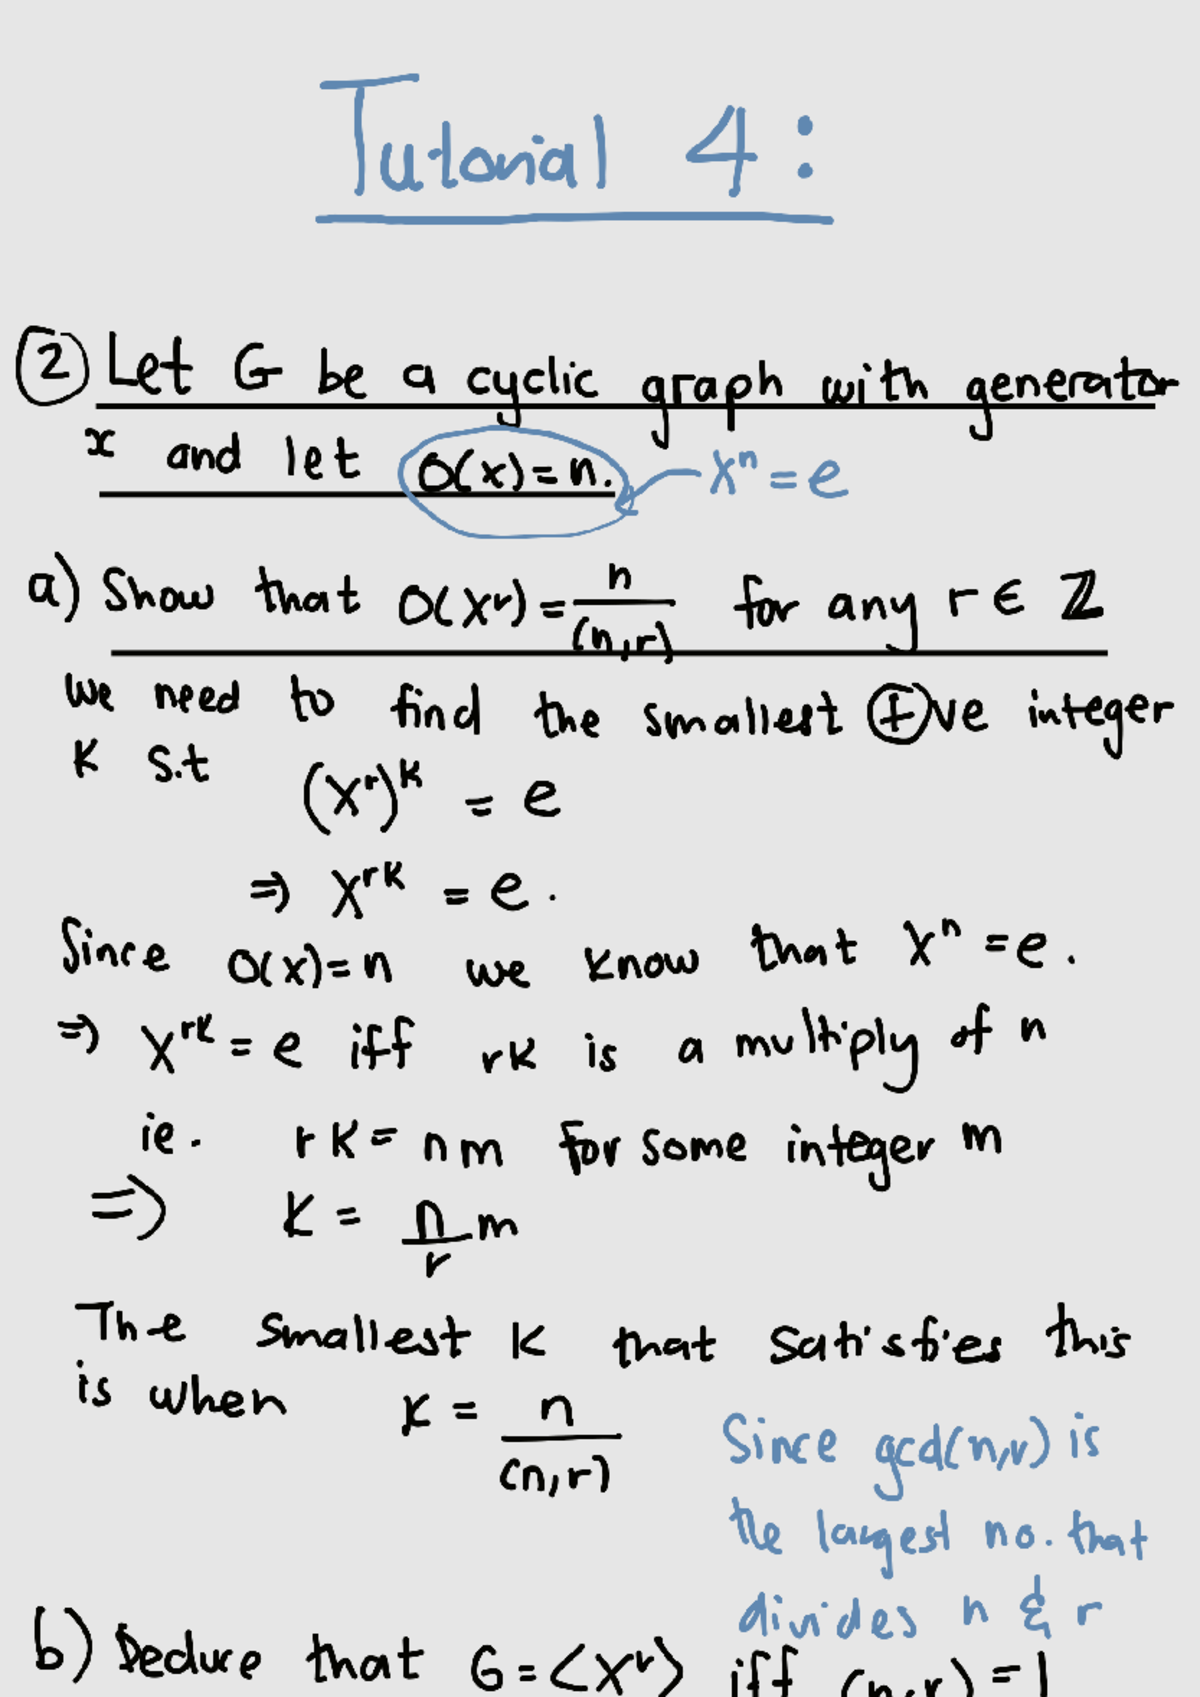 Tutorial 4:
② Let G be a cyclic graph with generator
x and let O(x) = n. xⁿ = e
a) Show that O(xʳ) = n/(n,r) for any r ∈ ℤ
We need to find the smallest ⊕ve integer
K s.t (xʳ)ᴷ = e
⇒ xʳᴷ = e.
Since O(x)=n we know that xⁿ = e.
⇒ xʳᴷ = e iff rK is a multiply of n
ie. rK = nm for some integer m
⇒ K = n/r m
The smallest K that satisfies this
is when K = n/(n,r)
Since gcd(n,r) is
the largest no. that
divides n & r
b) Deduce that G = <xʳ> iff (n,r) = 1